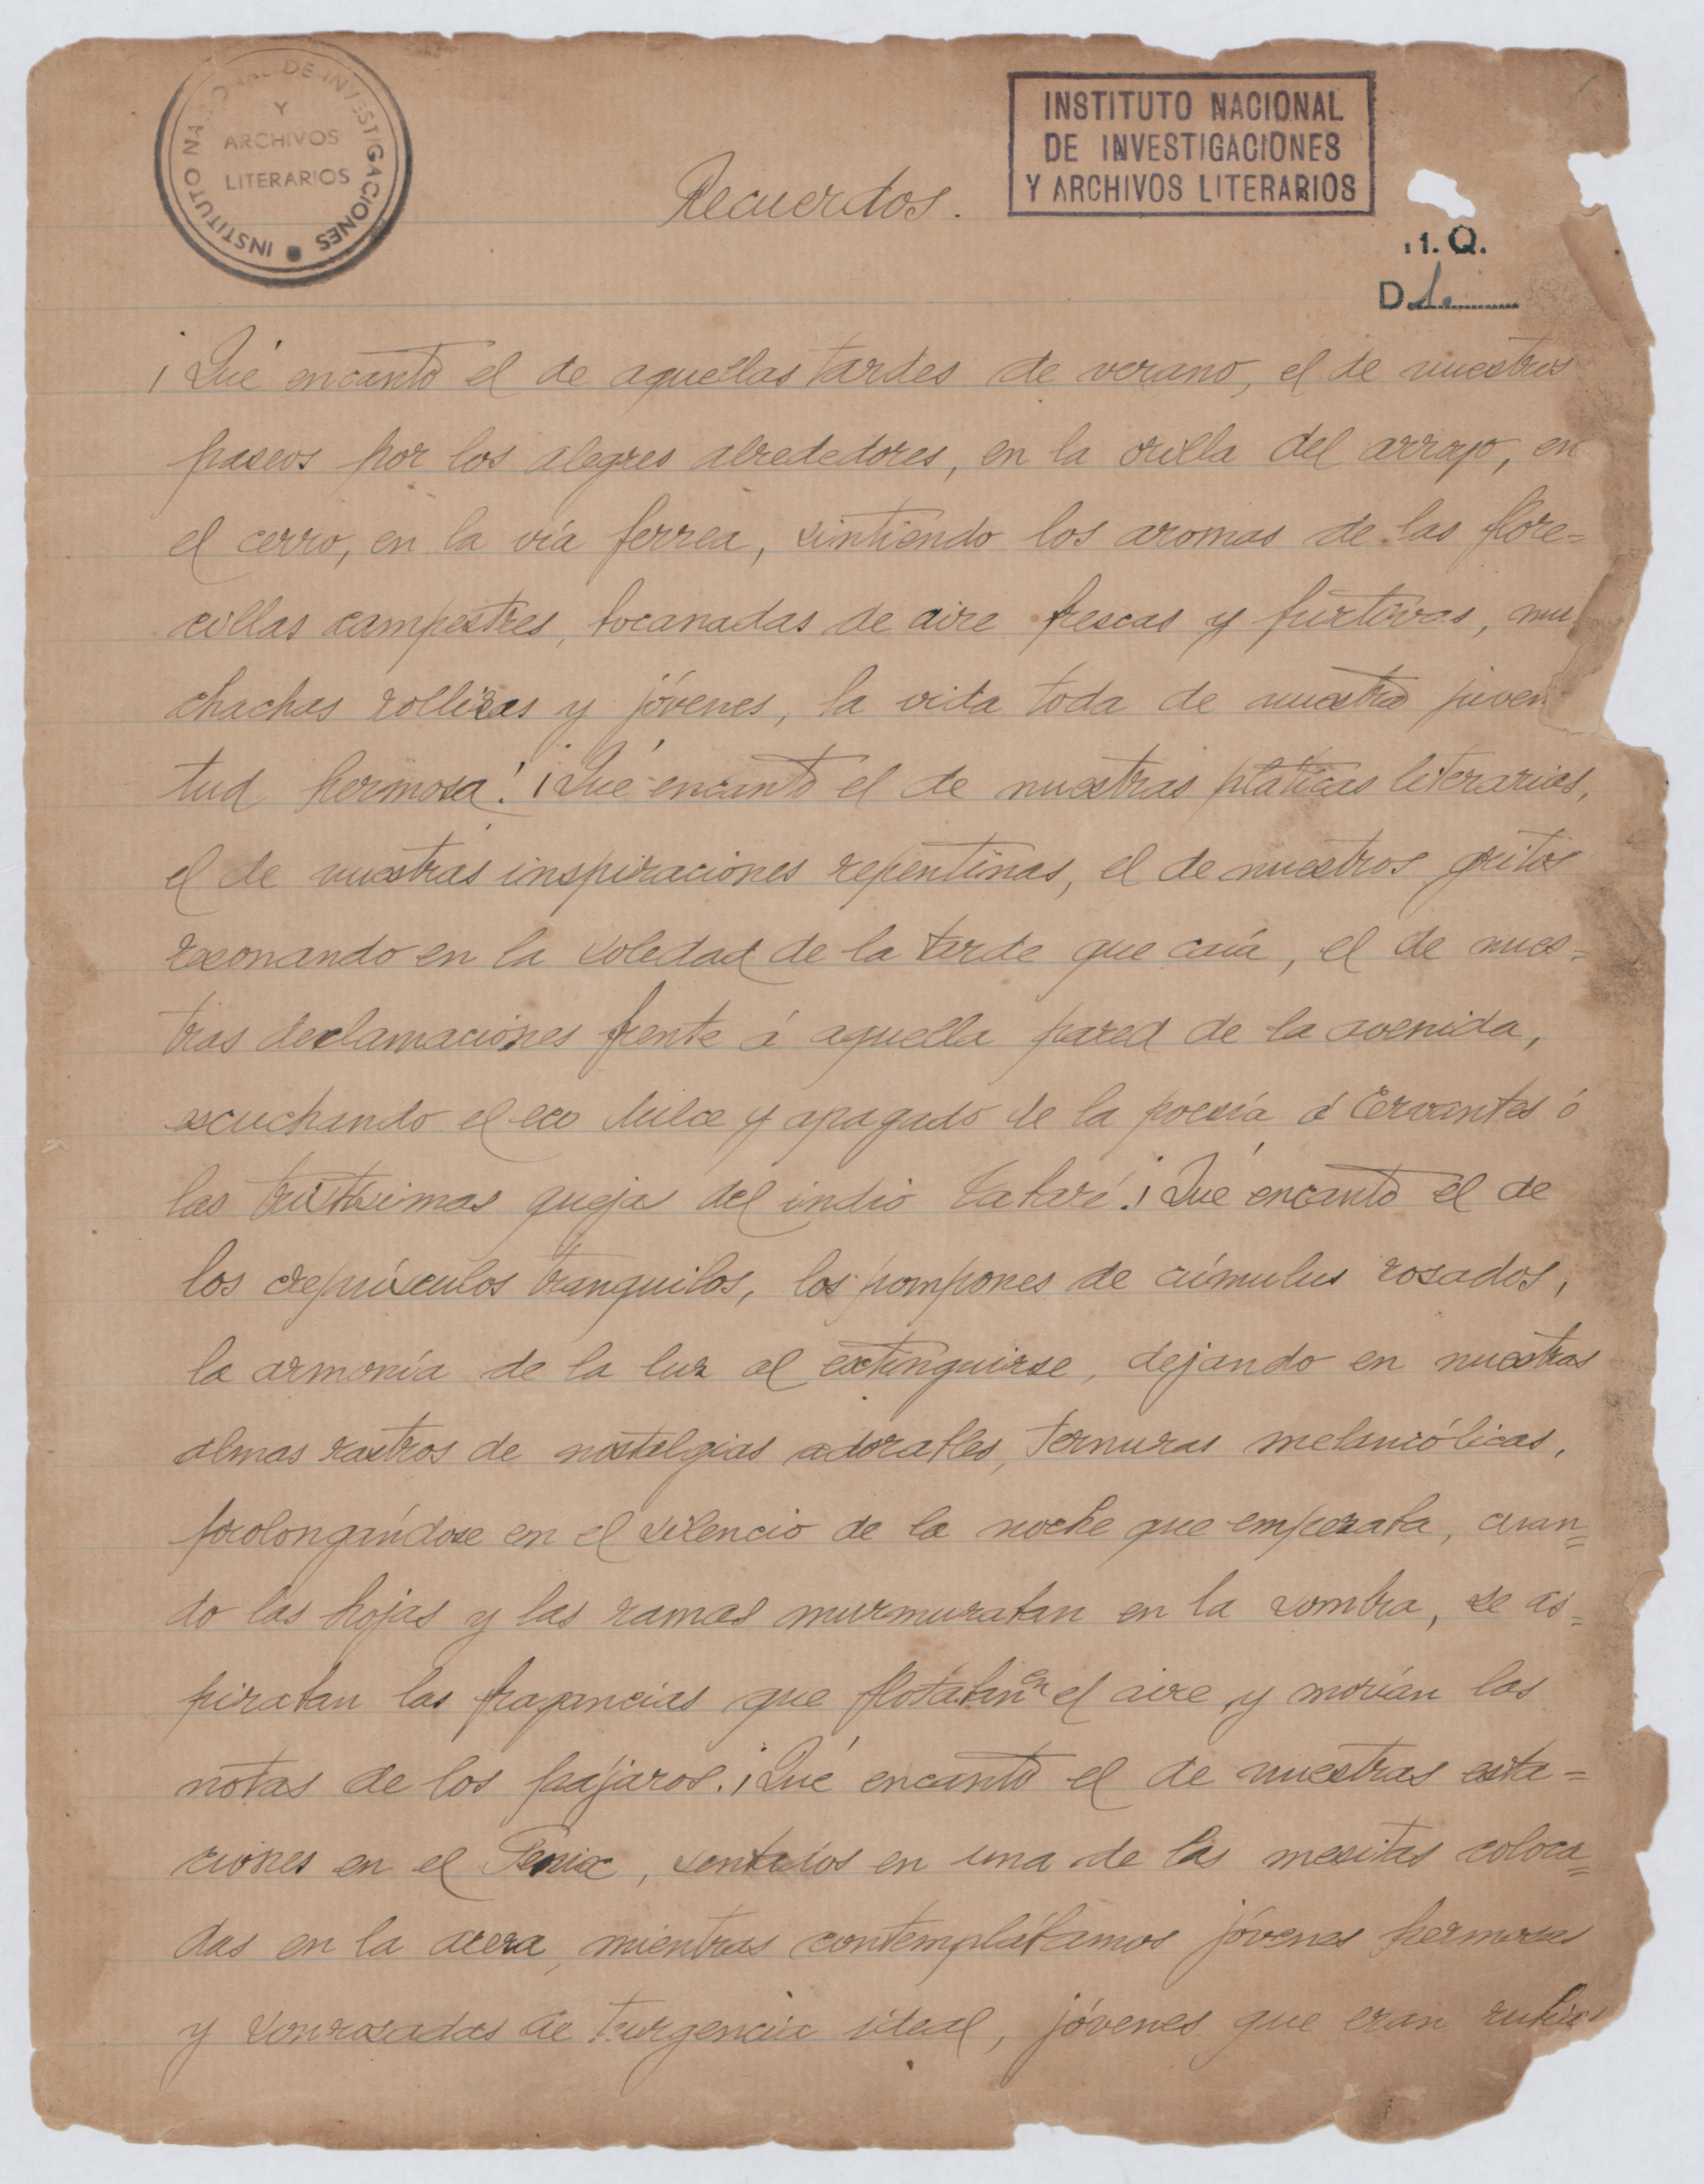 INSTITUTO NACIONAL DE INVESTIGACIONES
Y
ARCHIVOS
LITERARIOS
INSTITUTO NACIONAL
DE INVESTIGACIONES
Y ARCHIVOS LITERARIOS
Recuerdos.
1. Q.
D.1.
¡Qué encanto el de aquellas tardes de verano, el de nuestros
paseos por los alegres alrededores, en la orilla del arroyo, en
el cerro, en la vía ferrea, sintiendo los aromas de las flore=
cillas campestres, bocanadas de aire frescas y furtivas, mu
chachas rollizas y jóvenes, la vida toda de nuestra juven
tud hermosa! ¡Qué encanto el de nuestras pláticas literarias,
el de nuestras inspiraciones repentinas, el de nuestros gritos
resonando en la soledad de la tarde que caía, el de nues=
tras declamaciones frente á aquella pared de la avenida,
escuchando el eco dulce y apagado de la poesía á Cervantes ó
las tristísimas quejas del indio Tabaré! ¡Qué encanto el de
los crepúsculos tranquilos, los pompones de cúmulus rosados,
la armonía de la luz al extinguirse, dejando en nuestras
almas rastros de nostalgias adorables, ternuras melancólicas,
prolongándose en el silencio de la noche que empezaba, cuan=
do las hojas y las ramas murmuraban en la sombra, se as=
piraban las fragancias que flotaban en el aire, y morían las
notas de los pájaros. ¡Qué encanto el de nuestras esta=
ciones en el Fenix, sentados en una de las mesitas coloca=
das en la acera, mientras contemplábamos jóvenes hermosas
y sonrosadas de turgencia ideal, jóvenes que eran rubias